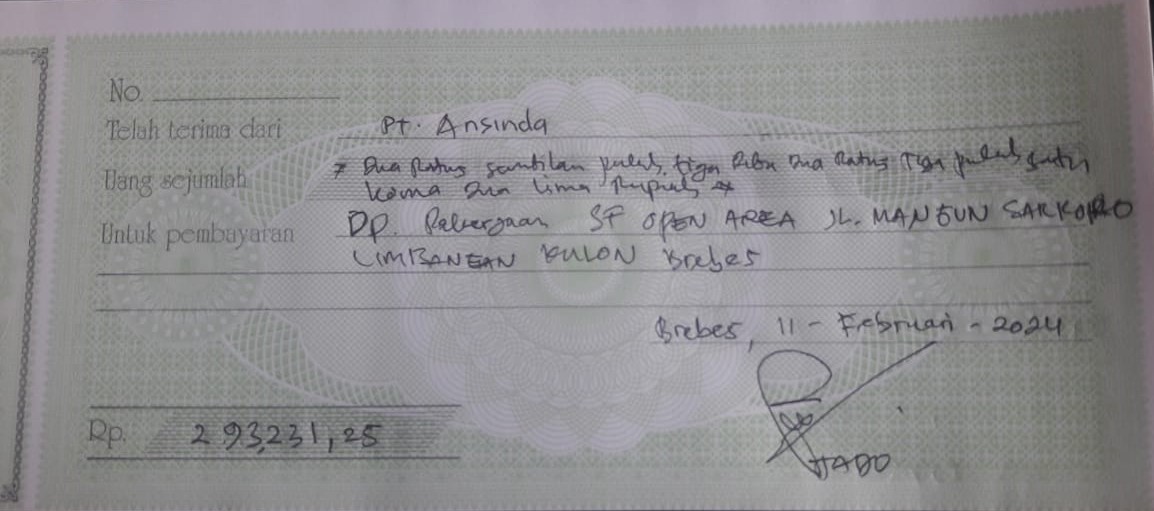 No.
Telah terima dari Pt. Ansinda
Uang sejumlah # Dua Ratus sembilan puluh tiga Ribu Dua Ratus Tiga puluh satu
koma Dua lima Rupiah #
Untuk pembayaran DP. Pekerjaan SF OPEN AREA JL. MANGUN SARKORO
LIMBANGAN KULON Brebes
Brebes, 11 - Februari - 2024
Rp. 293,231,25